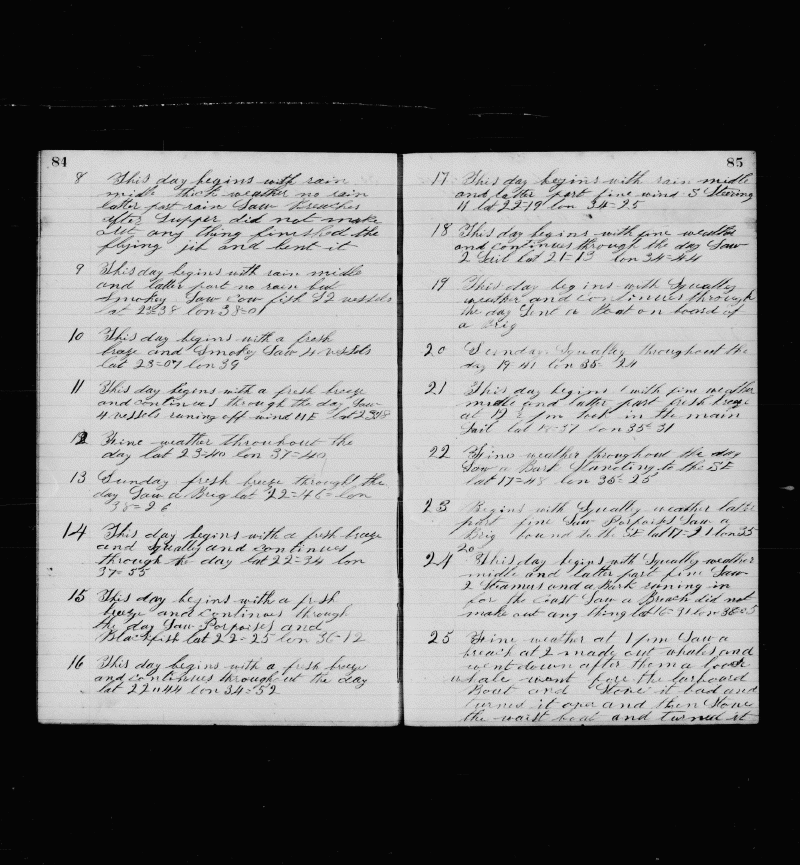 84
8 This day begins with rain
midle thick weather no rain
latter part rain Saw threaches
after Supper did not make
out any thing finished the
flying jib and bent it
9 This day begins with rain midle
and latter part no rain but
smokey Saw cow fish & 2 vessels
lat 22=38 lon 38=01
10 This day begins with a fresh
breze and Smokey Saw 4 vessels
lat 23=07 lon 39
11 This day begins with a fresh breze
and continues through the day Saw
4 vessels runing off wind NE lat 23=48
12 Fine weather throuhout the
day lat 23=40 lon 37=40
13 Sunday fresh breze throught the
day Saw a Brig lat 22=46= lon
38=26
14 This day begins with a fresh breze
and Squally and continues
through the day lat 22=34 lon
37=55
15 This day begins with a fresh
breze and continues through
the day Saw Porpoises and
Blackfish lat 22=25 lon 36=12
16 This day begins with a fresh breze
and continues throughout the day
lat 22=44 lon 34=52
85
17 This day begins with rain midle
and latter part fine wind S Stering
W lat 22=19 lon 34=25
18 This day begins with fine weather
and continues through the day Saw
2 Sail lat 21=13 lon 34=44
19 This day begins with Squally
weather and continues through
the day Sent a boat on board of
a Brig
20 Sunday Squally throughout the
day 19 41 lon 35= 24
21 This day begins with fine weather
midle and latter part fresh breze
at 12 ½ pm took in the main
Sail lat 18=37 lon 35=31
22 Fine weather throughout the day
Saw a Bark Standing to the SE
lat 17=48 lon 35=25
23 Begins with Squally weather latter
part fine Saw Porpoises Saw a
Brig bound to the SE lat 17=21 lon 35
20
24 This day begins with Squally weather
midle and latter part fine Saw
2 Steamers and a Bark runing in
for the Coast Saw a Breach did not
make out any thing lat 16=31 lon 36=05
25 Fine weather at 1 pm Saw a
breach at 2 made out whales and
went down after them a loose
whale went fore the larboard
Boat and Stove it bad and
turned it over and then Stove
the waist boat and turned it